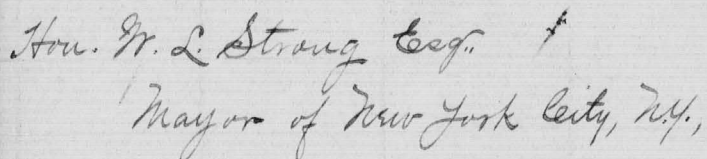 Hon. W. L. Strong Esq.,
Mayor of New York City, N.Y.,